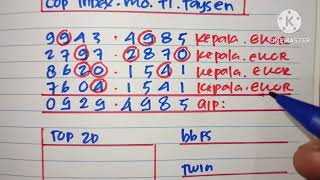 Cop Index. mo. Tl. Taysen
9943 . 4985 Kepala. EKOR
2797 . 2870 Kepala. EKOR
8620 . 1541 Kepala. EKOR
7604 . 1541 Kepala. EKOR
0929 . 4985 AIP:
TOP 2D
bbFS
Twin